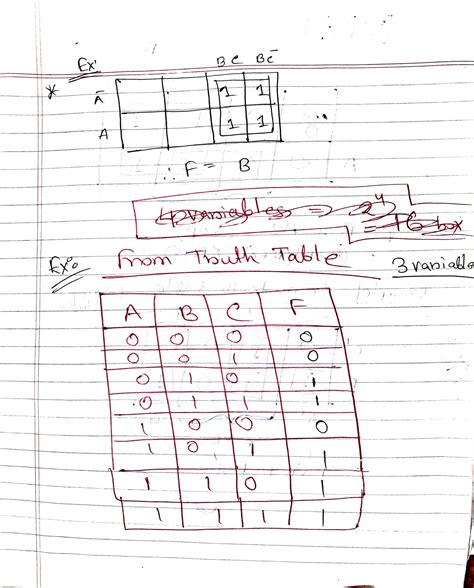 Ex:
BC BC̅
* A̅ 1 1
A 1 1
∴ F = B
4 variables = 2⁴
= 16 box
Ex: From Truth Table 3 variable
A B C F
0 0 0 0
0 0 1 0
0 1 0 1
0 1 1 1
1 0 0 0
1 0 1 1
1 1 0 1
1 1 1 1